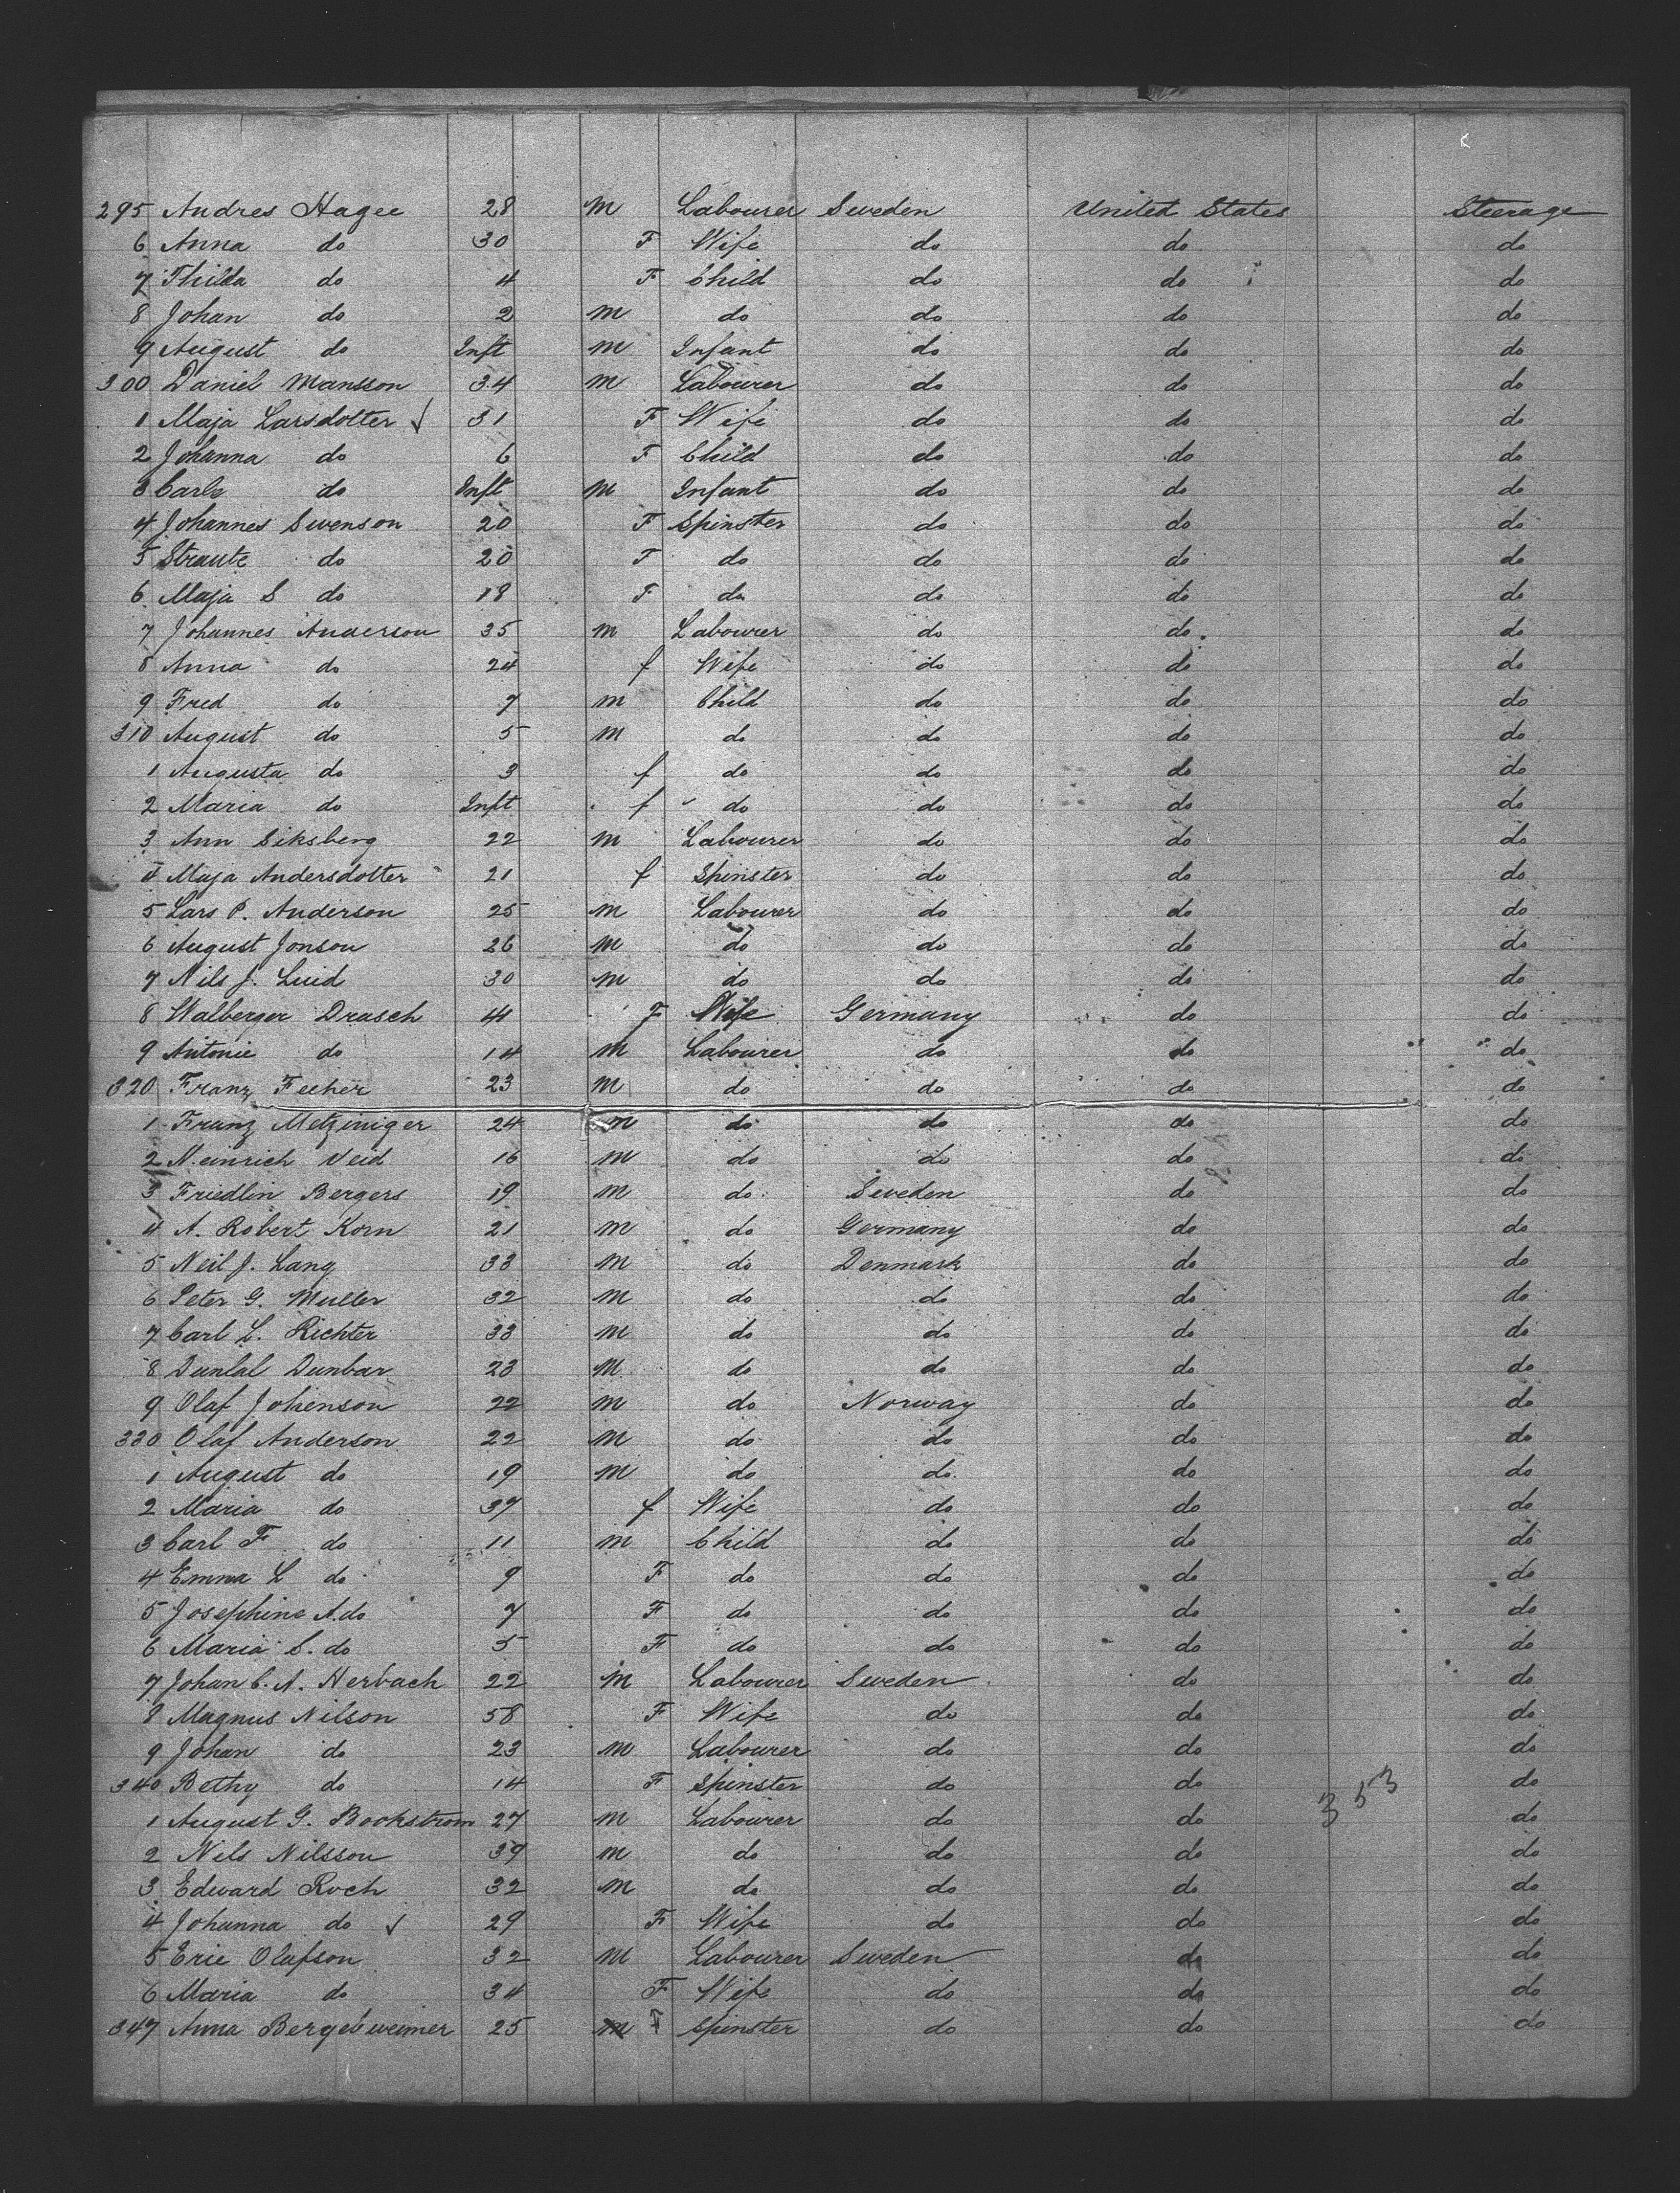 295 Andres Hagee 28 M Labourer Sweden United States Steerage
6 Anna do 30 F Wife do do do
7 Thilda do 4 F Child do do do
8 Johan do 2 M do do do do
9 August do Inft M Infant do do do
300 Daniel Mansson 34 M Labourer do do do
1 Maja Larsdotter √ 31 F Wife do do do
2 Johanna do 6 F Child do do do
3 Carls do Inft M Infant do do do
4 Johannes Swenson 20 F Spinster do do do
5 do 20 F do do do do
6 Maja S do 18 F do do do do
7 Johannes Anderson 35 M Labourer do do do
8 Anna do 24 f Wife do do do
9 Fred do 7 M Child do do do
310 August do 5 M do do do do
1 Augusta do 3 f do do do do
2 Maria do Inft f do do do do
3 Ann Siksberg 22 M Labourer do do do
4 Maja Andersdotter 21 f Spinster do do do
5 Lars P. Anderson 25 M Labourer do do do
6 August Jonson 26 M do do do do
7 Nils J. Luid 30 M do do do do
8 Walberger Drasch 41 F Wife Germany do do
9 Antonie do 14 M Labourer do do do
320 Franz Fecher 23 M do do do do
1 Franz Metziniger 24 M do do do do
2 Heinrich Veid 16 M do do do do
3 Friedlin Bergers 19 M do Sweden do do
4 A. Robert Korn 21 M do Germany do do
5 Neil J. Lang 33 M do Denmark do do
6 Peter G. Muller 32 M do do do do
7 Carl L. Richter 33 M do do do do
8 Dunlal Dunbar 23 M do do do do
9 Olaf Johenson 22 M do Norway do do
330 Olaf Anderson 22 M do do do do
1 August do 19 M do do do do
2 Maria do 37 f Wife do do do
3 Carl F do 11 M Child do do do
4 Emma L do 9 F do do do do
5 Josephine A. do 7 F do do do do
6 Maria C. do 5 F do do do do
7 Johan C. A. Herbach 22 M Labourer Sweden do do
8 Magnus Nilson 58 F Wife do do do
9 Johan do 23 M Labourer do do do
340 Bethy do 14 F Spinster do do 353 do
1 August G. Bookstrom 27 M Labourer do do do
2 Nils Nilsson 39 M do do do do
3 Edward Roch 32 M do do do do
4 Johanna do √ 29 F Wife do do do
5 Eric Olafson 32 M Labourer Sweden do do
6 Maria do 34 F Wife do do do
347 Anna Bergebweimer 25 M F Spinster do do do